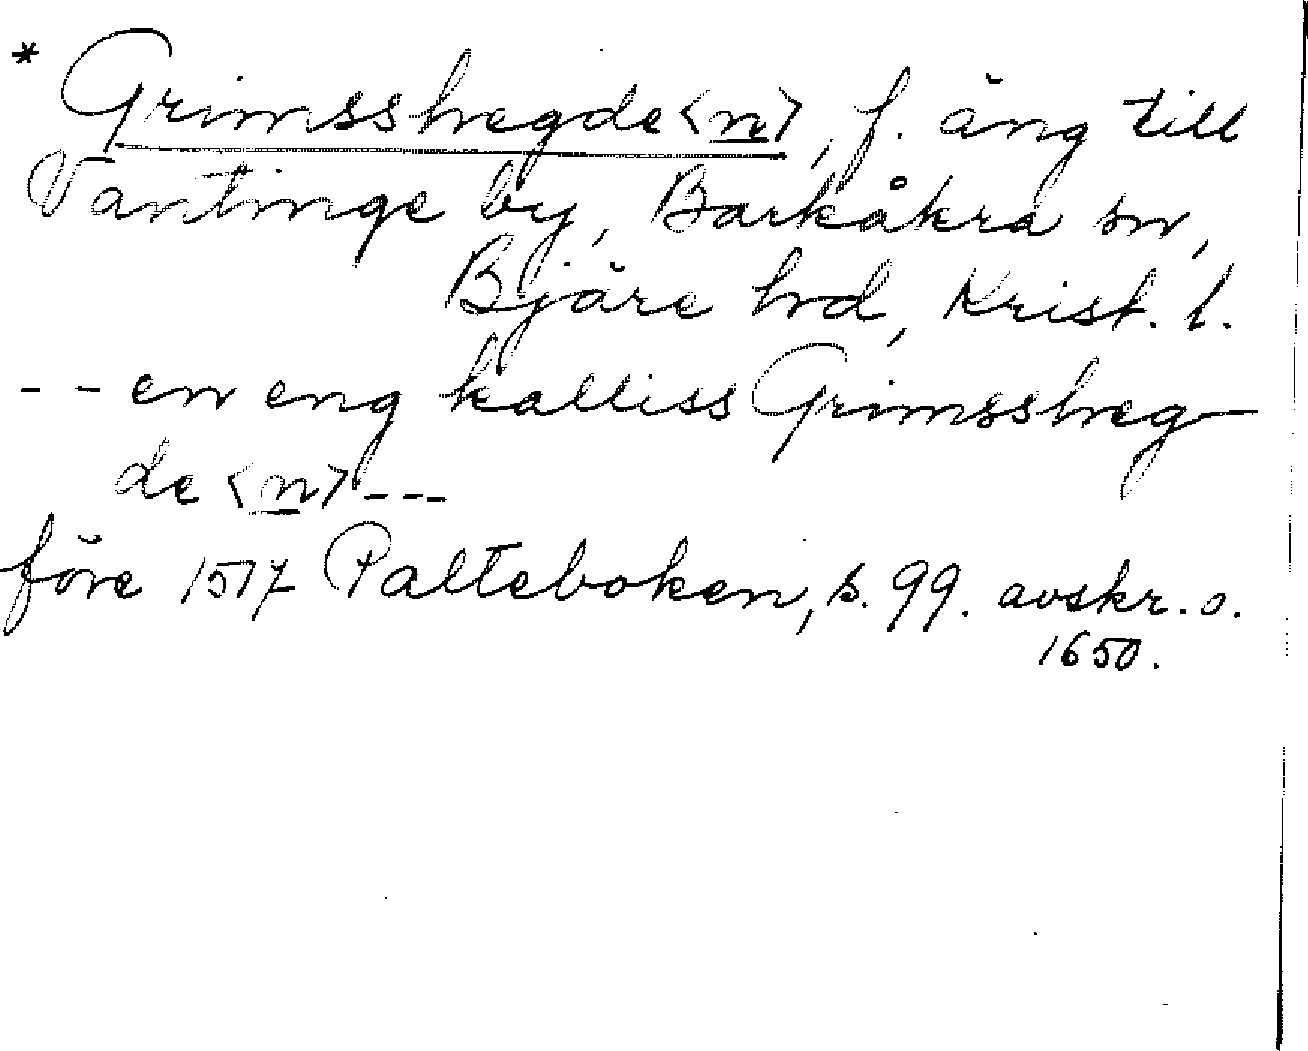 * Grimsshegde<n>, f. äng till
Vantinge by, Barkåkra sn,
Bjäre hd, Krist. l.
- - en eng kalliss Grimssheg-
de <n> - - -
före 1517 Palteboken, s. 99. avskr. o.
1650.